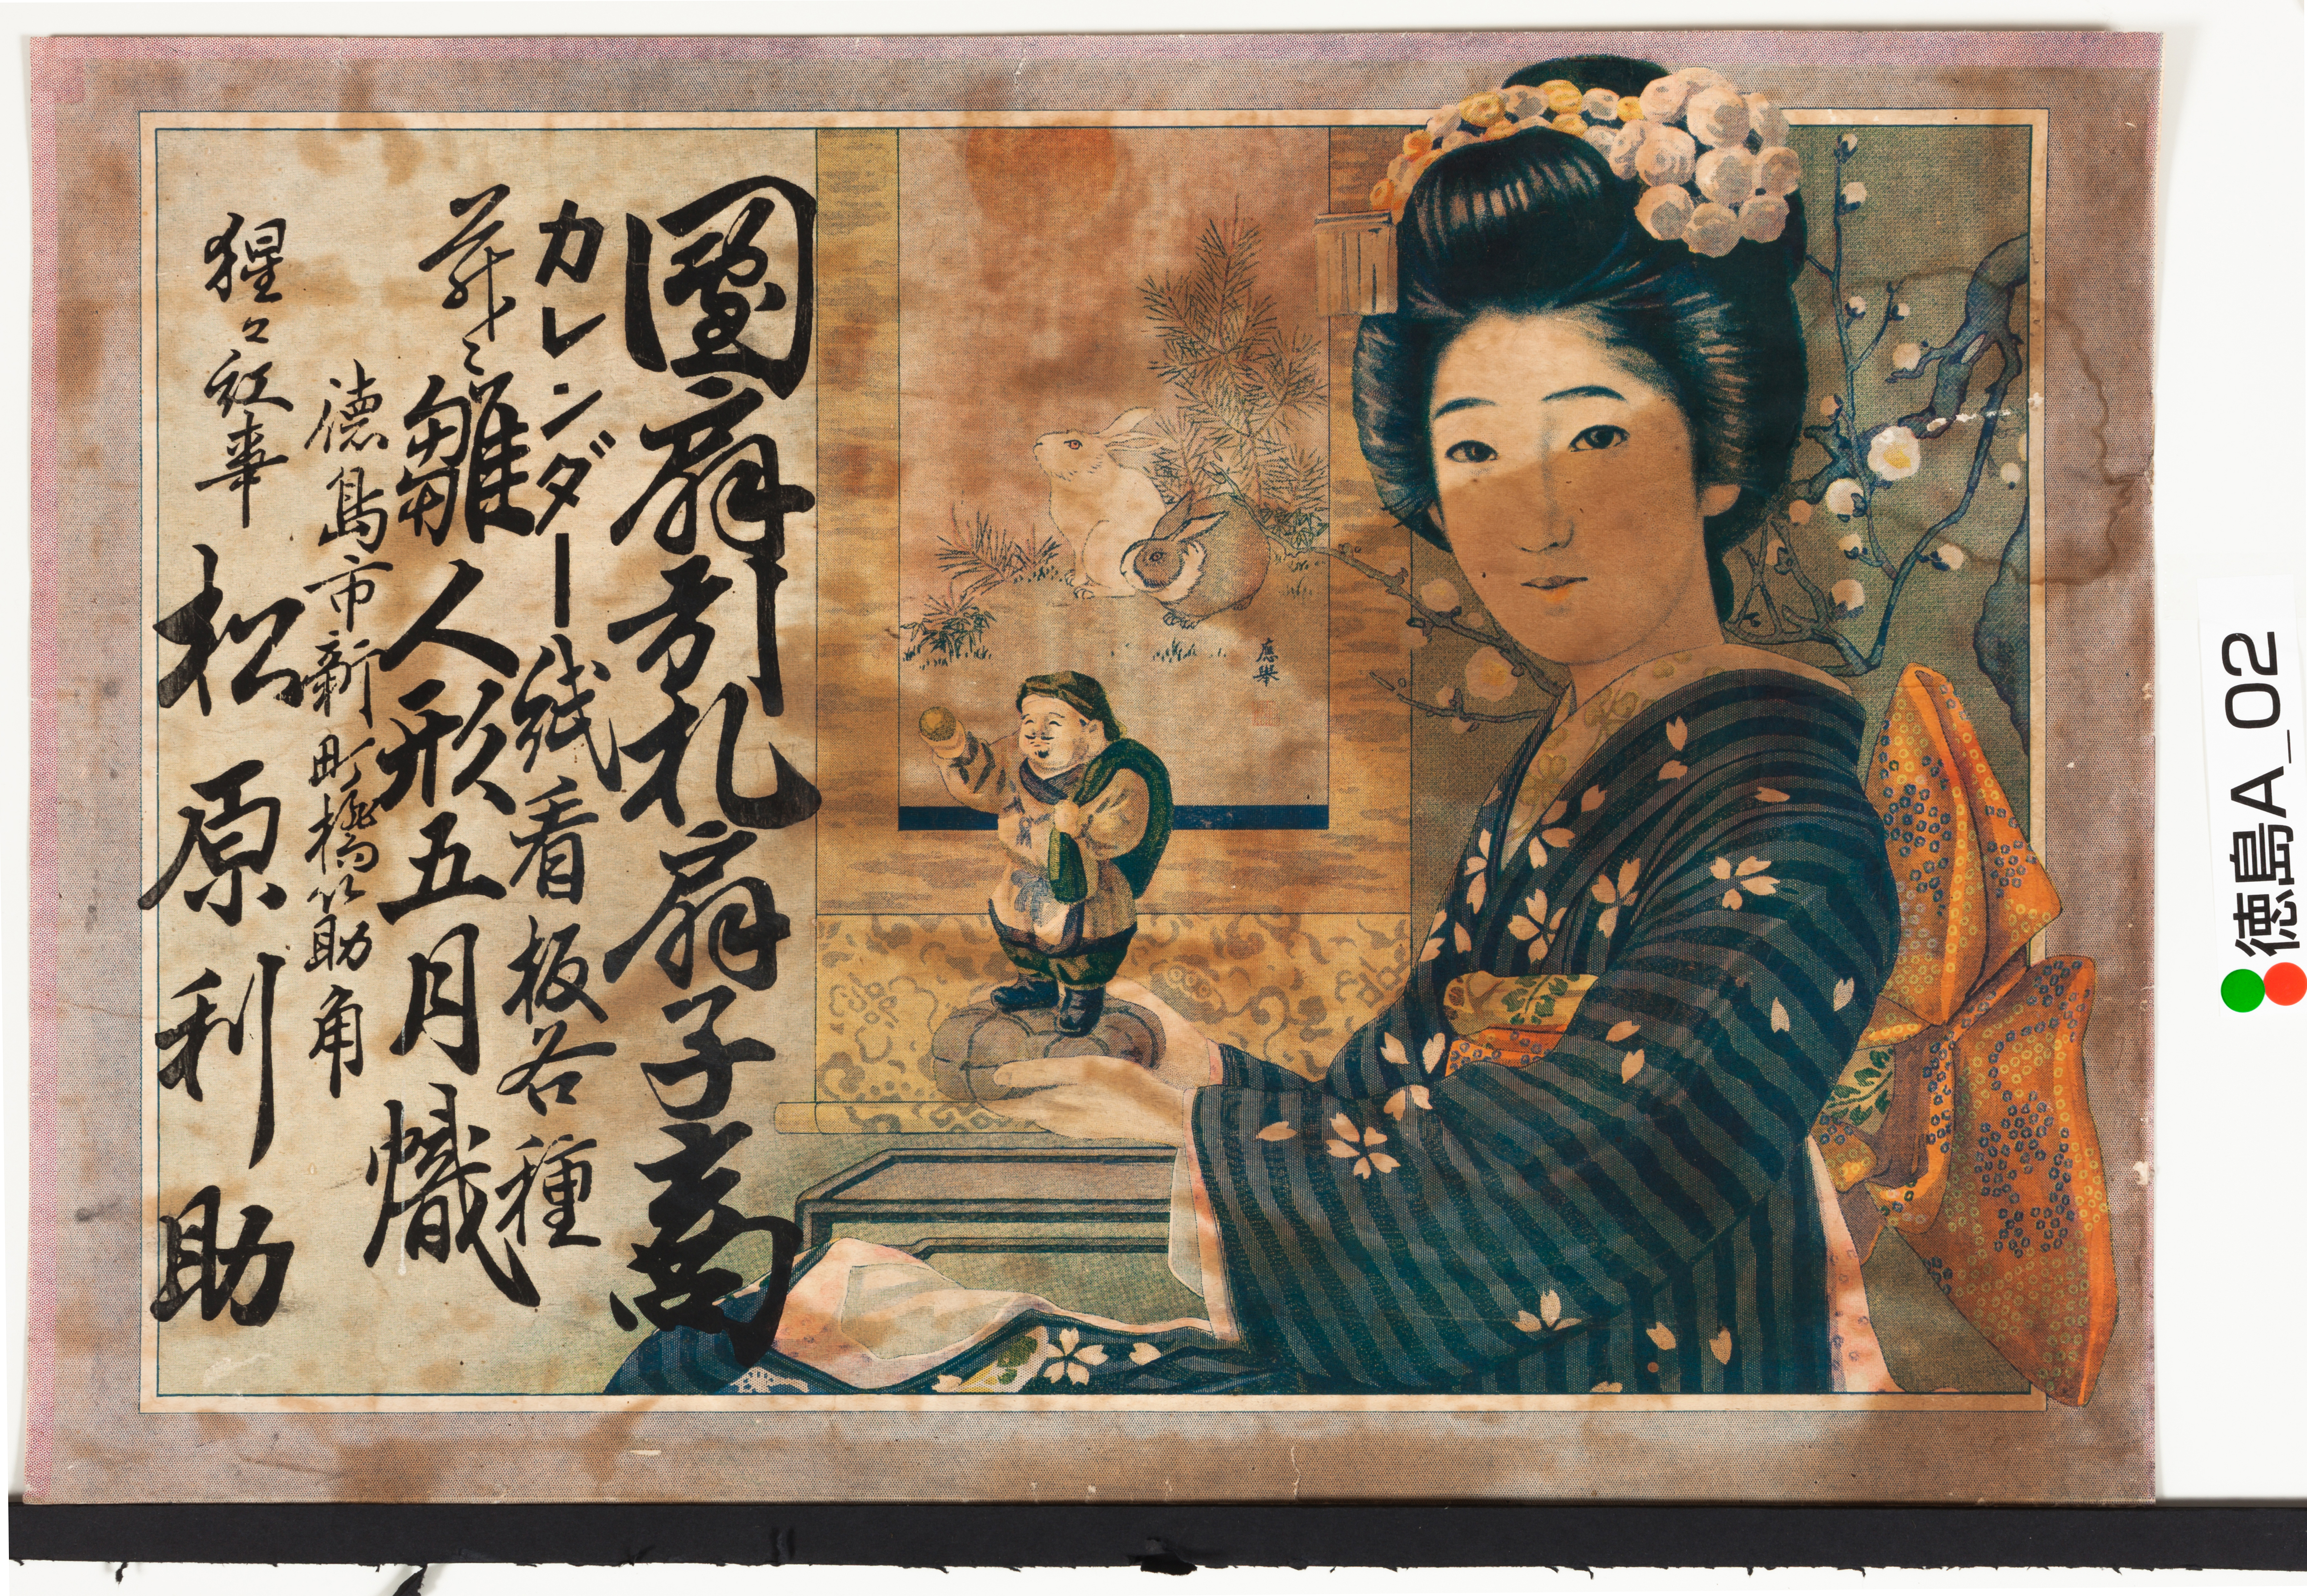 團扇引札扇子商
カレンダー紙看板各種
并ニ雛人形五月幟
徳島市新町橋筋角
猩々紅事 松原利助
應舉
徳島A_02